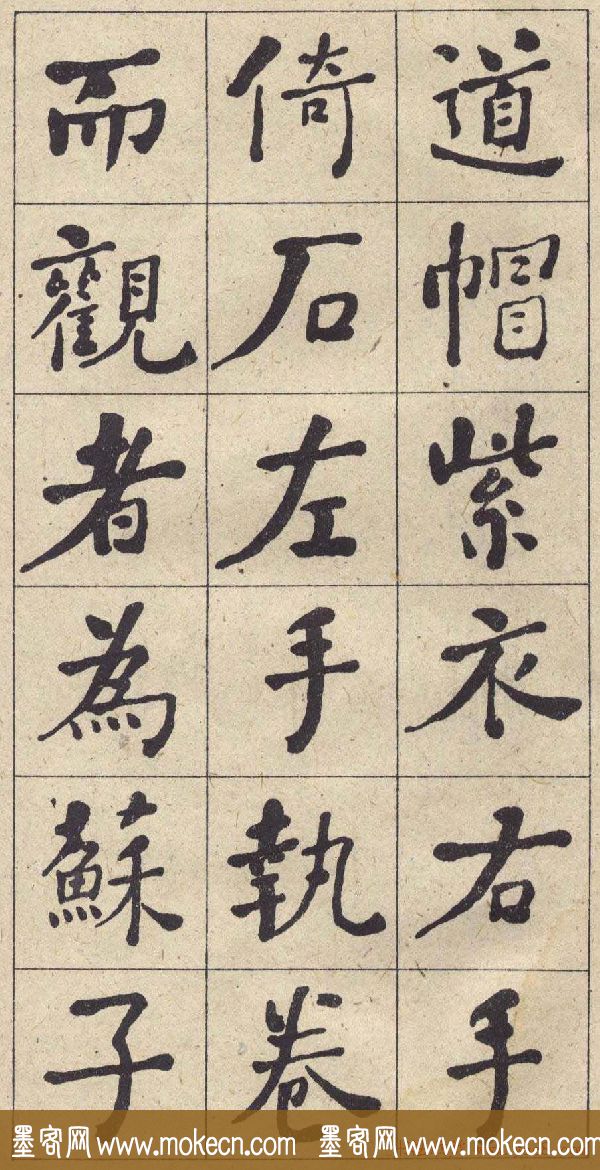 道帽紫衣右手
倚石左手執卷
而觀者為蘇子
墨客网 www.mokecn.com 墨客网 www.mokecn.com